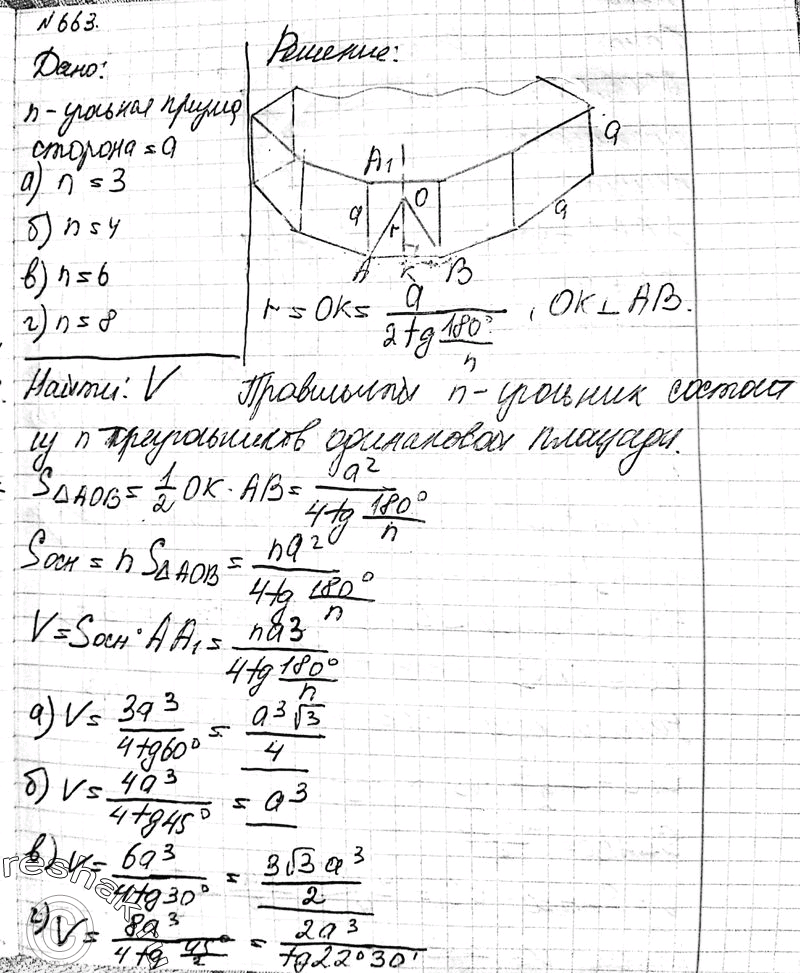 №663.
Дано:
n-угольная призма
сторона = a
а) n = 3
б) n = 4
в) n = 6
г) n = 8
Найти: V
Решение:
A₁
a
a
a
O
r
A
K
B
r = OK = a / (2tg 180°/n), OK ⊥ AB.
Правильный n-угольник состоит
из n треугольников одинаковой площади.
S△AOB = 1/2 OK · AB = a² / (4tg 180°/n)
Sосн = n S△AOB = na² / (4tg 180°/n)
V = Sосн · AA₁ = na³ / (4tg 180°/n)
а) V = 3a³ / 4tg60° = a³√3 / 4
б) V = 4a³ / 4tg45° = a³
в) V = 6a³ / 4tg30° = 3√3 a³ / 2
г) V = 8a³ / (4tg 45°/2) = 2a³ / tg22°30'